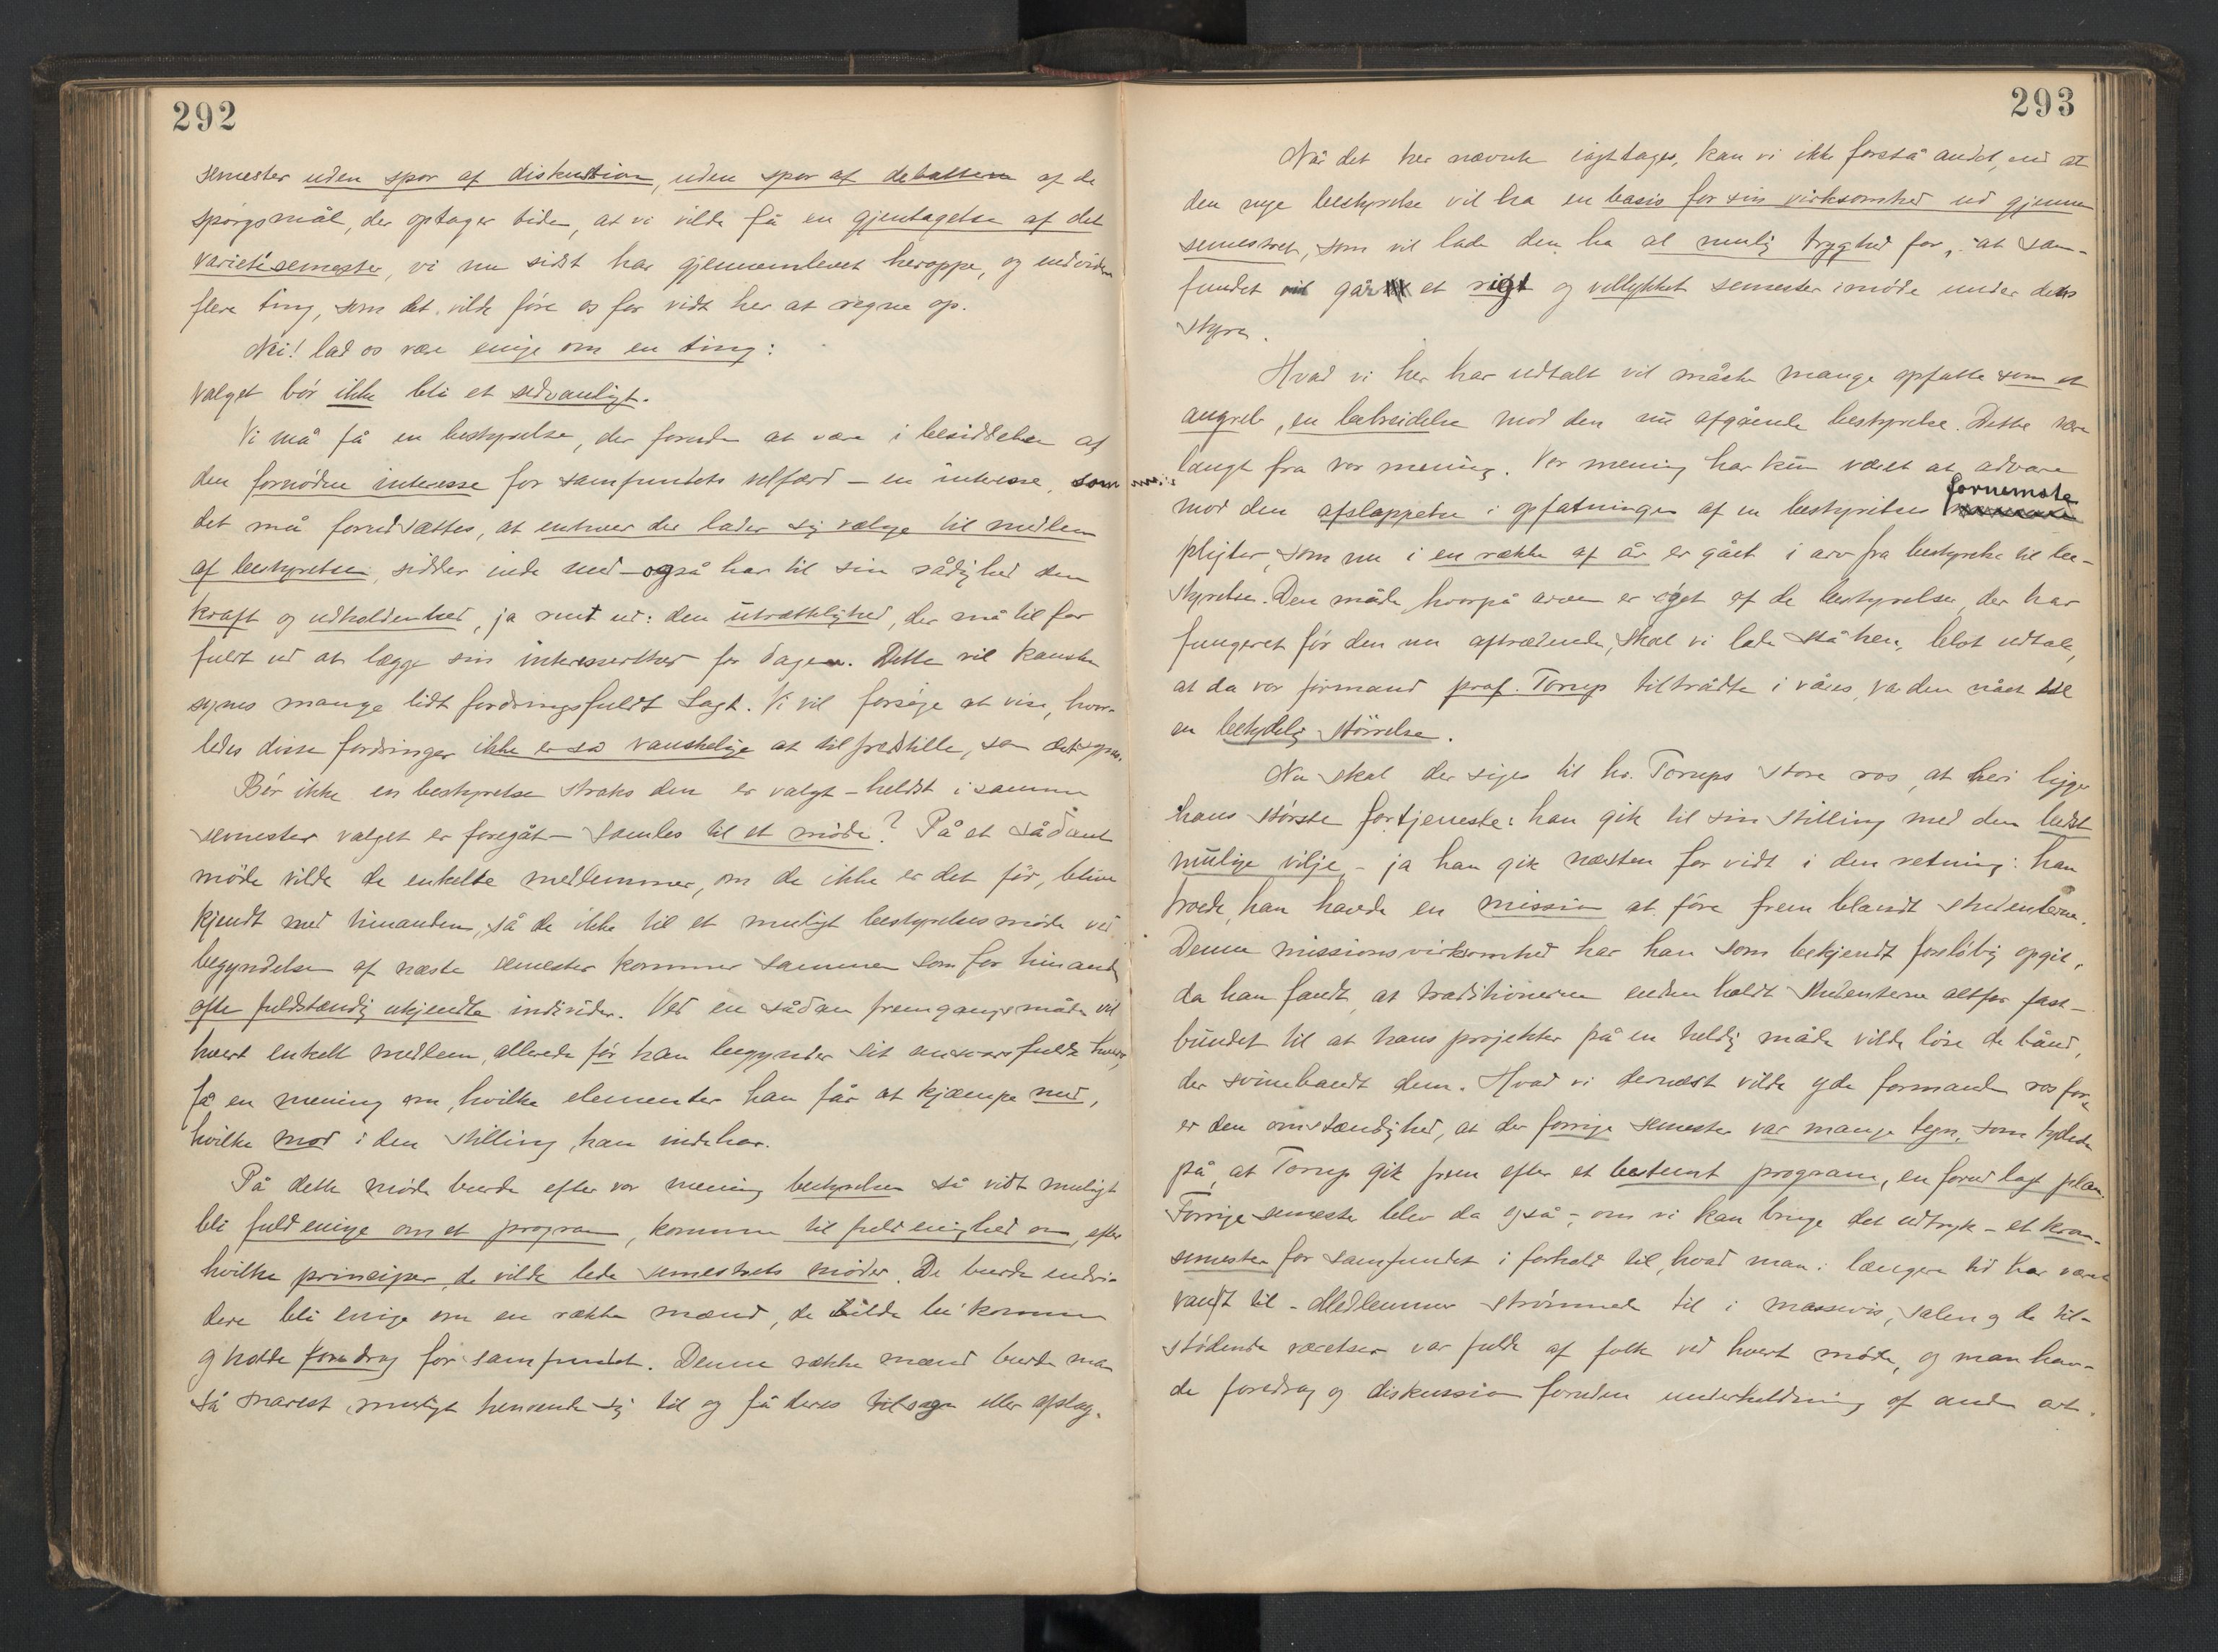 292
semester uden spor af diskustion, uden spor af debatterne af de
spørgsmål, der optager tiden, at vi vilde få en gjentagelse af det
varietésemester, vi nu sidst har gjennemlevet heroppe, og endvidere
flere ting, som det vilde føre os for vidt her at regne op.
Nei! lad os være enige om en ting:
Valget bør ikke bli et sedvanligt.
Vi må få en bestyrelse, der foruden at være i besiddelse af
den fornødne interesse for samfundets velfærd – en interesse, som
det må forudsættes, at enhver der lader sig vælge til medlem
af bestyrelsen, sidder inde med – også har til sin rådighed den
kraft og udholdenhed, ja rent ud: den utrættelighed, der må til for
fuldt ud at lægge sin interesserthed for dagen. Dette vil kanske
synes mange lidt fordringsfuldt sagt. Vi vil forsøge at vise, hvor-
ledes disse fordringer ikke er så vanskelige at tilfredstille, som det synes.
Bør ikke en bestyrelse straks den er valgt – heldst i samme
semester valget er foregåt – samles til et møde? På et sådant
møde vilde de enkelte medlemmer, om de ikke er det før, blive
kjendt med hinanden, så de ikke til et muligt bestyrelsesmøde ved
begyndelsen af næste semester kommer sammen som for hinanden
ofte fuldstændig ukjendte individer. Ved en sådan fremgangsmåde vil
hvert enkelt medlem, allerede før han begynder sit ansvarsfulde hverv,
få en mening om, hvilke elementer han får at kjæmpe med,
hvilke mod i den stilling, han indehar.
På dette møde burde efter vor mening bestyrelsen så vidt muligt
bli fuld enige om et program, komme til fuld enighed om, efter
hvilke principer, de vilde lede semestrets møder. De burde endvi-
dere bli enige om en række mænd, de vilde be komme
og holde foredrag for samfundet. Denne række mænd burde man
så snarest muligt henvende sig til og få deres tilsagn eller afslag.
293
Når det her nævnte iagttages, kan vi ikke forstå andet, end at
den nye bestyrelse vil ha en basis for sin virksomhed ud gjennem
semestret, som vil lade den ha al mulig tryghed for, at sam-
fundet går et rigt og vellykket semester imøde under dens
styre.
Hvad vi her har udtalt vil måske mange opfatte som et
angreb, en bebreidelse mod den nu afgående bestyrelse. Dette være
langt fra vor mening. Vor mening har kun været at advare
mod den afslappelse i opfatningen af en bestyrelses fornemste
pligter, som nu i en række af år er gået i arv fra bestyrelse til be-
styrelse. Den måde, hvorpå arven er øget af de bestyrelser, der har
fungeret før den nu aftrædende, skal vi lade stå hen, blot udtale,
at da vor formand prof. Torup tiltrådte i våres, var den nået til
en betydelig størrelse.
Nu skal der siges til hr. Torups store ros, at heri ligger
hans største fortjeneste: han gik til sin stilling med den bedst
mulige vilje – ja han gik næsten for vidt i den retning: han
troede, han havde en mission at føre frem blandt studenterne.
Denne missionsvirksomhed har han som bekjendt foreløbig opgit,
da han fandt, at traditionerne endnu holdt studenterne altfor fast-
bundet til at hans projekter på en heldig måde vilde løse de bånd,
der svinebandt dem. Hvad vi dernæst vilde yde formanden ros for,
er den omstændighed, at der forrige semester var mange tegn, som tydede
på, at Torup gik frem efter et bestemt program, en forud lagt plan.
Forrige semester blev da også – om vi kan bruge det udtryk – et kron-
semester for samfundet i forhold til, hvad man i længere tid har været
vandt til. Medlemmer strømmede til i massevis, salen og de til-
stødende værelser var fulde af folk ved hvert møde, og man hav-
de foredrag og diskussion foruden underholdning af anden art.